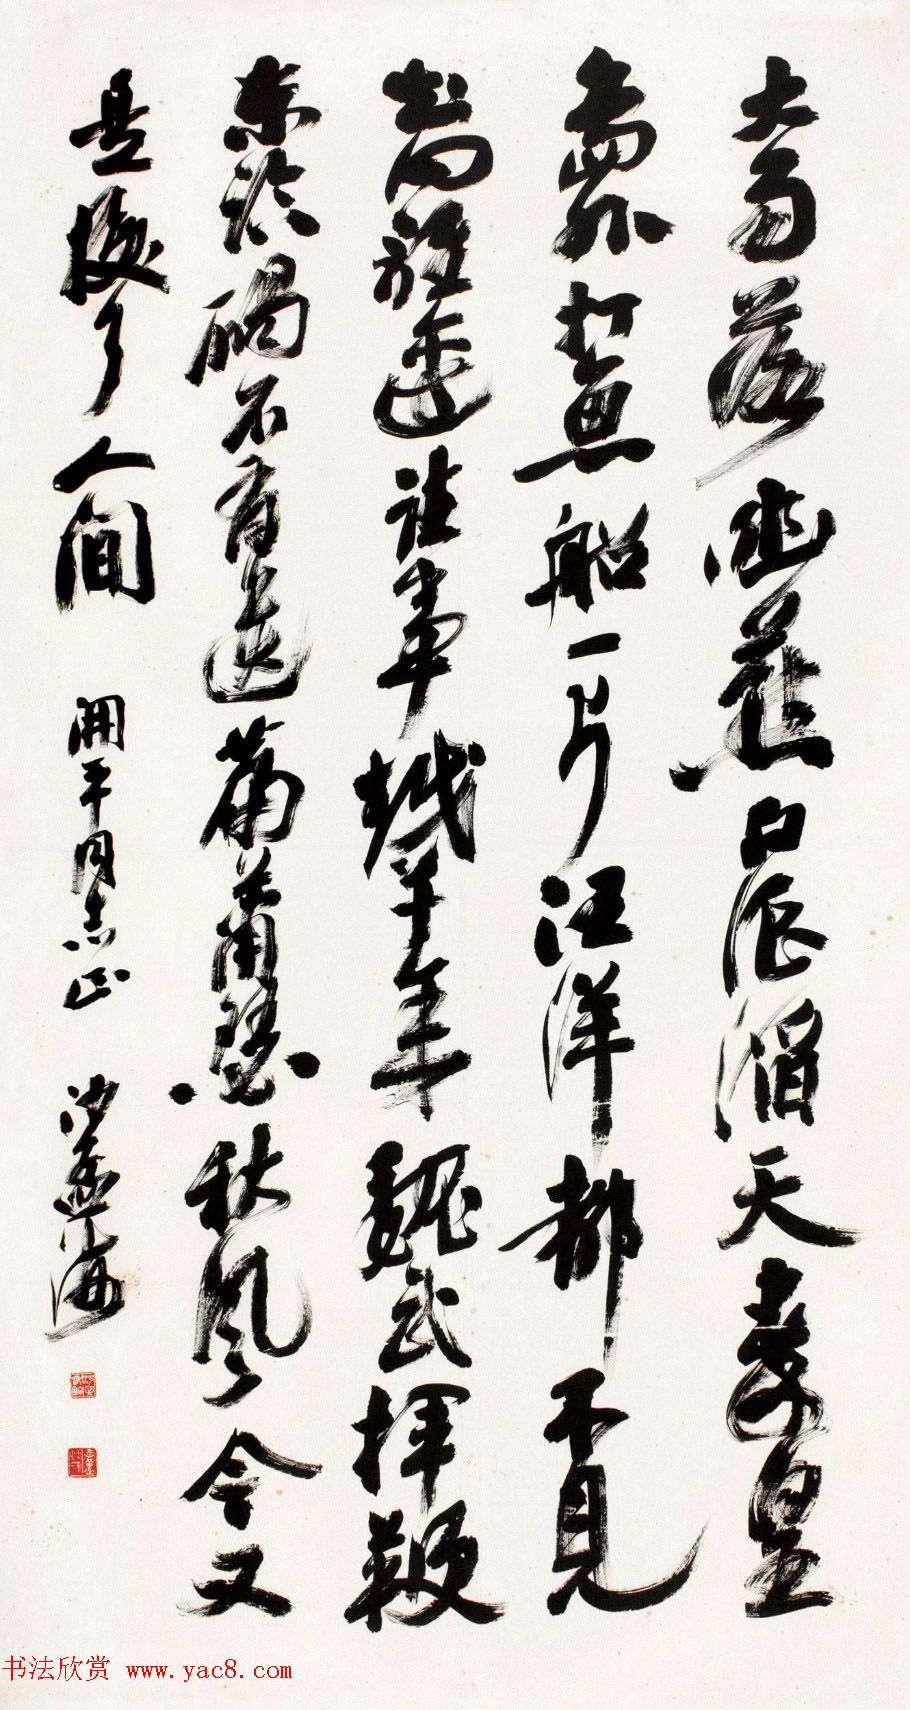 大雨落幽燕白浪滔天秦皇
島外打魚船一片汪洋都不見
知向誰邊往事越千年魏武揮鞭
東臨碣石有遺篇蕭瑟秋風今又
是換了人間 開平同志正 沙孟海
书法欣赏 www.yac8.com